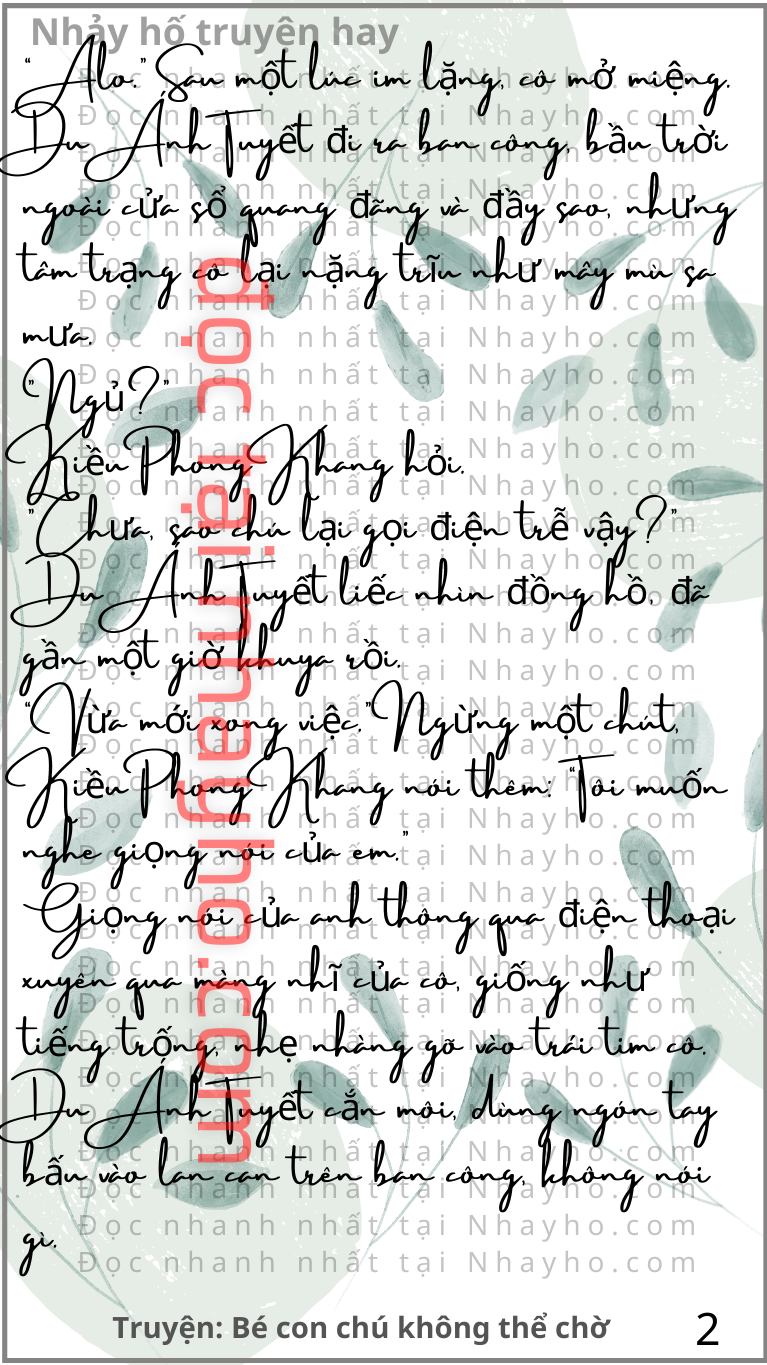 Nhảy hố truyện hay
"Alo." Sau một lúc im lặng, cô mở miệng.
Du Ánh Tuyết đi ra ban công, bầu trời
ngoài cửa sổ quang đãng và đầy sao, nhưng
tâm trạng cô lại nặng trĩu như mây mù sa
mưa.
"Ngủ?"
Kiều Phong Khang hỏi.
"Chưa, sao chú lại gọi điện trễ vậy?"
Du Ánh Tuyết liếc nhìn đồng hồ, đã
gần một giờ khuya rồi.
"Vừa mới xong việc." Ngừng một chút,
Kiều Phong Khang nói thêm: "Tôi muốn
nghe giọng nói của em."
Giọng nói của anh thông qua điện thoại
xuyên qua màng nhĩ của cô, giống như
tiếng trống, nhẹ nhàng gõ vào trái tim cô.
Du Ánh Tuyết cắn môi, dùng ngón tay
bấu vào lan can trên ban công, không nói
gì.
đọc tại nhayho.com
Đọc nhanh nhất tại Nhayho.com
Truyện: Bé con chú không thể chờ
2